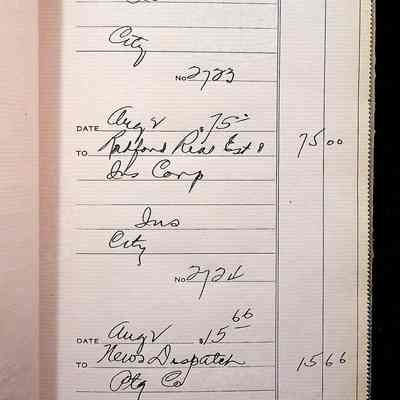 City
No 2723
DATE Aug 2 $75°
TO Radford Real Est & 75 00
Ins Corp
Ins
City
No 2724
DATE Aug 2 $15 66
TO News Dispatch 15 66
Ptg Co